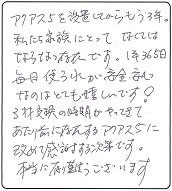 アクアス5を設置してからもう3年。
私たち家族にとって、なくては
ならない存在です。1年365日
毎日使うれか安全安心
なのはとても嬉しいです!
3材交換の時期がやってきて
あたり前に存在するアクアス5に
改めて感謝する次第です。
本当に有難うございます